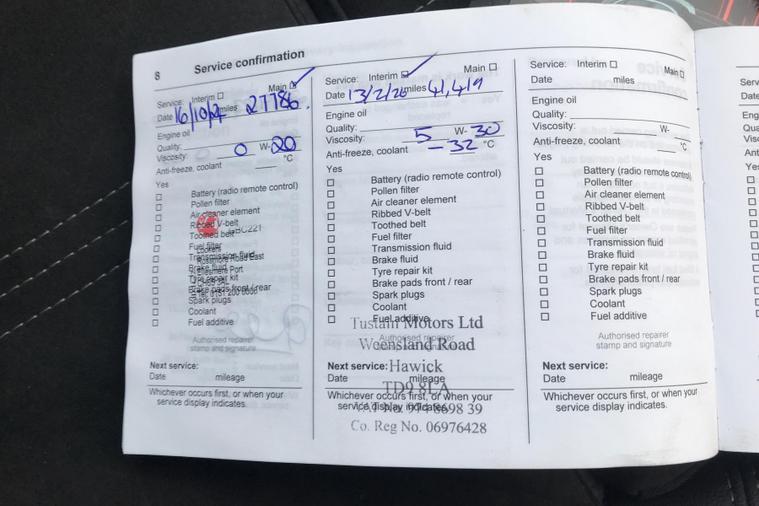 8 Service confirmation
Service: Interim ☐ Main ☑
Date 16/10/24 miles 27786.
Engine oil
Quality:
Viscosity: 0 W-20
Anti-freeze, coolant °C
Yes
☐ Battery (radio remote control)
☐ Pollen filter
☐ Air cleaner element
☐ Ribbed V-belt
☐ Toothed belt
☐ Fuel filter
☐ Transmission fluid
☐ Brake fluid
☐ Tyre repair kit
☐ Brake pads front / rear
☐ Spark plugs
☐ Coolant
☐ Fuel additive
Lookers
Rossmore Road East
Ellesmere Port
Authorised repairer
stamp and signature
Next service:
Date mileage
Whichever occurs first, or when your
service display indicates.
Service: Interim ☑ Main ☐
Date 13/2/26 miles 41,419
Engine oil
Quality:
Viscosity: 5 W- 30
Anti-freeze, coolant -32 °C
Yes
☐ Battery (radio remote control)
☐ Pollen filter
☐ Air cleaner element
☐ Ribbed V-belt
☐ Toothed belt
☐ Fuel filter
☐ Transmission fluid
☐ Brake fluid
☐ Tyre repair kit
☐ Brake pads front / rear
☐ Spark plugs
☐ Coolant
☐ Fuel additive
Tustain Motors Ltd
Authorised repairer
stamp and signature
Weensland Road
Next service:
Hawick
Date mileage
TD9 8LA
Whichever occurs first, or when your
service display indicates.
Co. Reg No. 06976428
Service: Interim ☐ Main ☐
Date miles
Engine oil
Quality:
Viscosity: W-
Anti-freeze, coolant °C
Yes
☐ Battery (radio remote control)
☐ Pollen filter
☐ Air cleaner element
☐ Ribbed V-belt
☐ Toothed belt
☐ Fuel filter
☐ Transmission fluid
☐ Brake fluid
☐ Tyre repair kit
☐ Brake pads front / rear
☐ Spark plugs
☐ Coolant
☐ Fuel additive
Authorised repairer
stamp and signature
Next service:
Date mileage
Whichever occurs first, or when your
service display indicates.